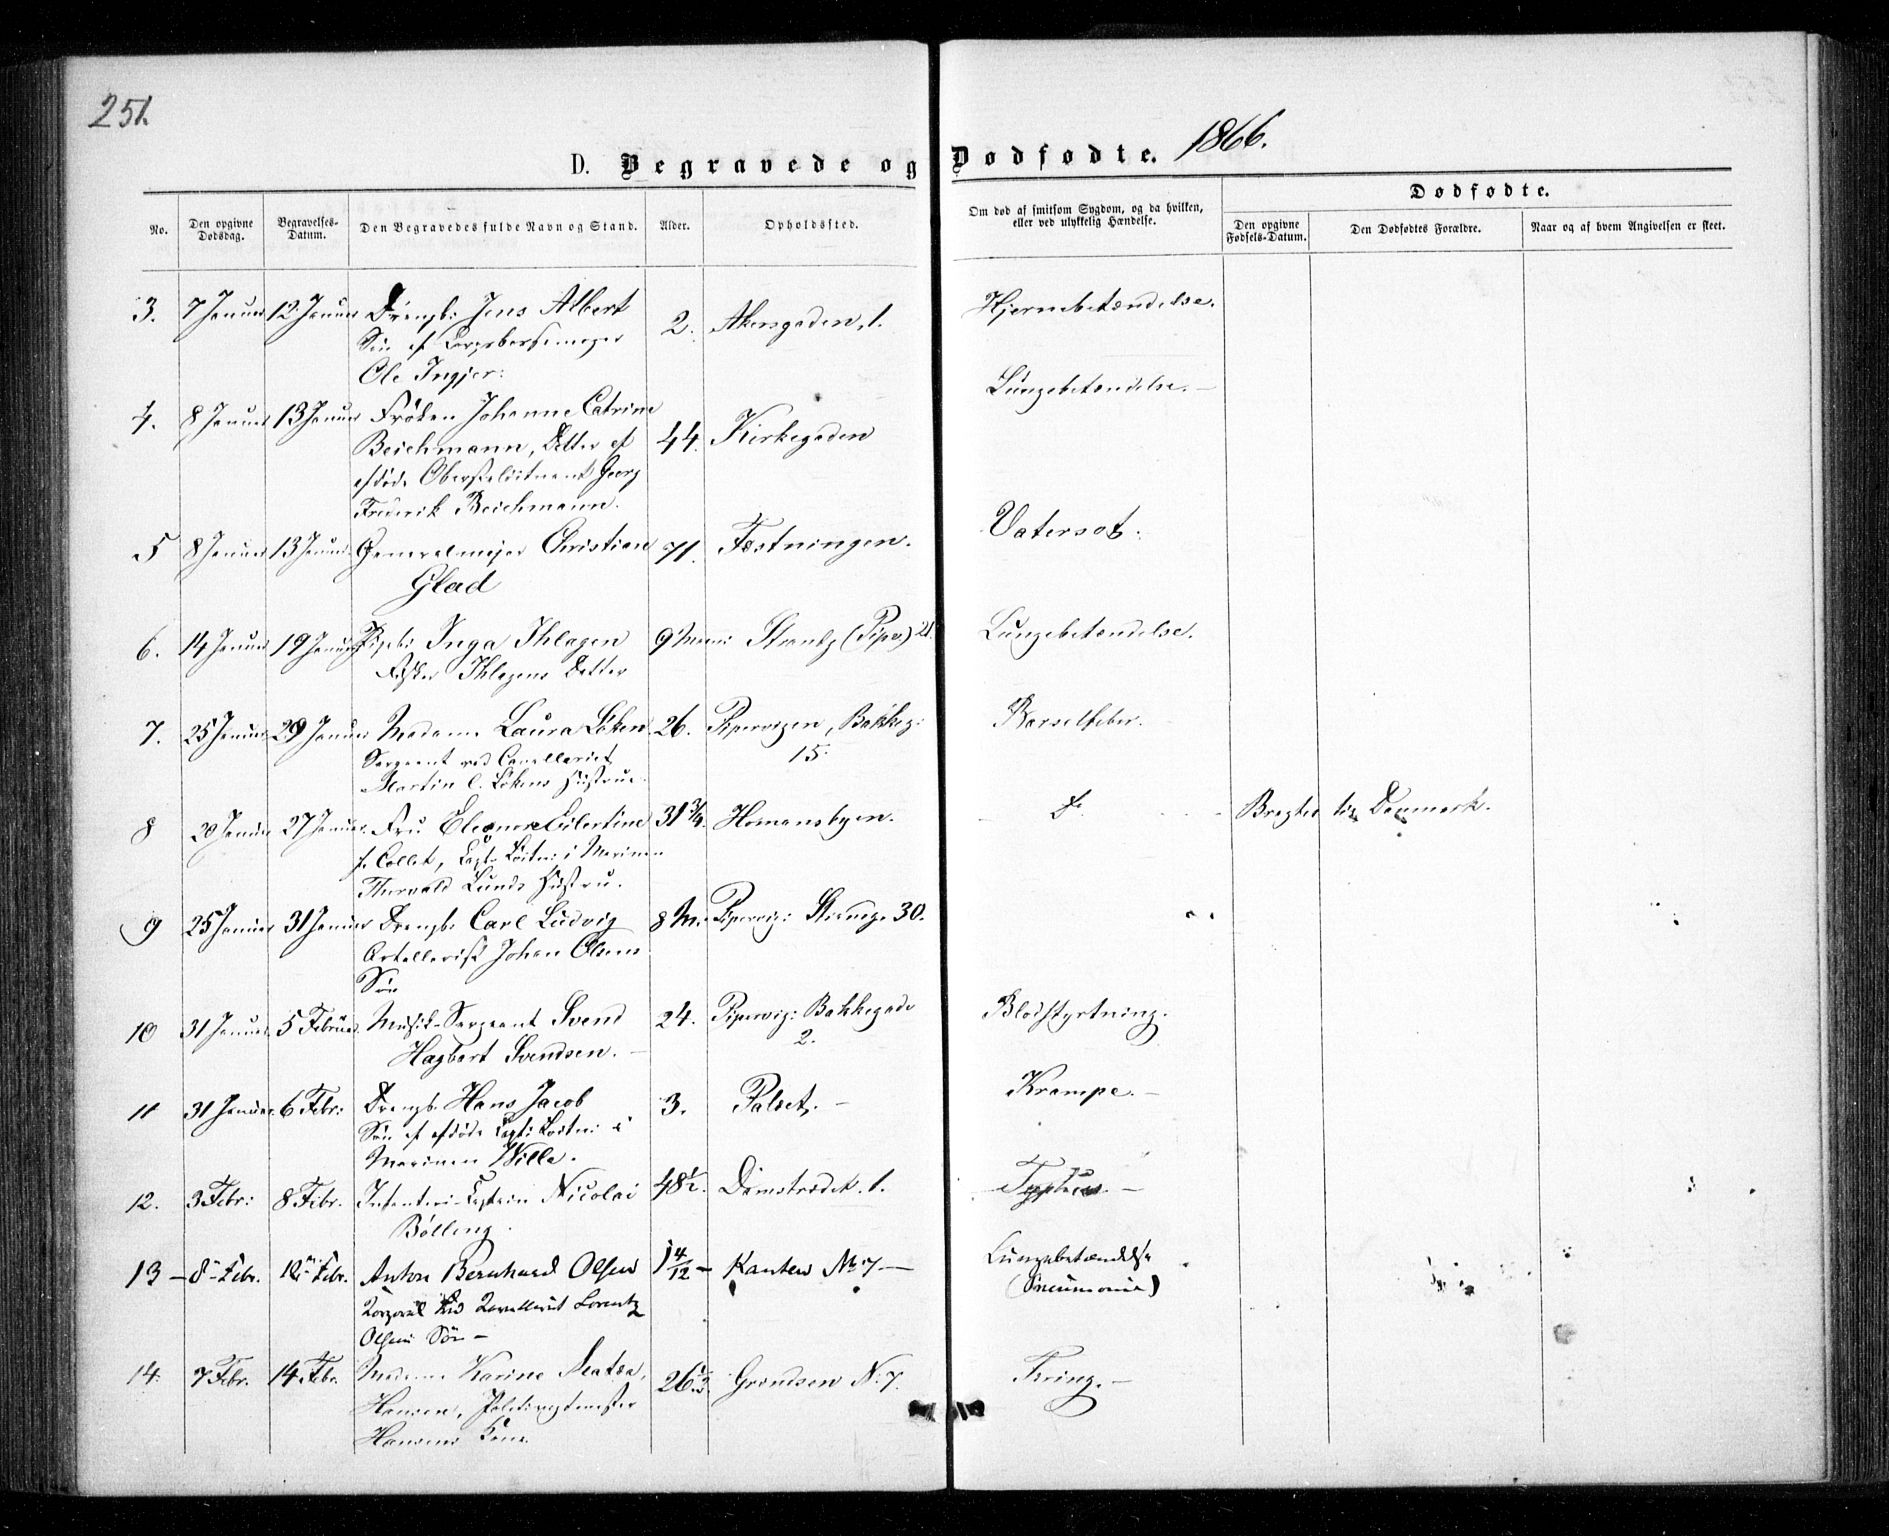 251.
D. Begravede og Dødfødte. 1866.
Dødfødte.
No.
Den opgivne Dødsdag.
Begravelses-Datum.
Den Begravedes fulde Navn og Stand.
Alder.
Opholdssted.
Om død af smitsom Sygdom, og da hvilken, eller ved ulykkelig Hændelse.
Den opgivne Fødsels-Datum.
Den Dødfødtes Forældre.
Naar og af hvem Angivelsen er skeet.
3. 7 Januar 12 Januar Drengb: Jens Albert 2. Akersgaden, 1. Hjernebetændelse.
Søn af
Ole Ingjer:
4. 8 Januar 13 Januar Frøken Johanne Catrine 44. Kirkegaden Lungebetændelse. —
Beichmann, Datter af
afdøde Oberstløitnant Georg
Frederik Beichmann.
5 8 Januar 13 Januar Generalmajor Christian 71. Fæstningen. Vatersot.
Glad
6. 14 Januar 19 Januar Pigeb: Inga Ihlagen 9 Maan: (Piperv.) 21. Lungebetændelse.
Ihlagens Datter
7. 25 Januar 29 Januar Madame Laura Løken 26. Pipervigen, Bakkeg: Barselfeber.
15.
Sergeant ved Cavalleriet
Martin C. Løkens Hustrue.
8 20 Januar 27 Januar Fru Eleonore Eilertine 31 3/4. Homansbyen. Bragtes til Danmark.
f. Collet, Capt. Løitn: i Marinen
Thorvald Lunds Hustru.
9 25 Januar 31 Januar Drengb. Carl Ludvig 8 M: Pipervig: 30.
Artellerist Johan Olsens
Søn
10 31 Januar 5 Februar Musik-Sergeant Svend 24. Pipervig: Bakkegade Blodstyrtning.
2.
Hagbart Svendsen. —
11 31 Januar 6 Febr: Drengb. Hans Jacob 3. Palæet. — Krampe. —
Søn af afdøde Capt: Løitn: i
Marinen Wille.
12. 3 Febr: 8 Febr. Infanteri-Captain Nicolai 48 1/2. Damstrædet. 1. Typhus. —
Bølling.
13 — 8de Febr. Febr. Anton Bernhard Olsen 1 4/12 — Kanten No 7 — Lungebetændelse
(Pneumonie)
Korporal ved Kavalleriet Lorentz
Olsens Søn —
14. 7 Febr. 14 Febr. Madame Karine 26 Grændsen N: 7. Tæring. —
Hansen,
Hansens Kone.